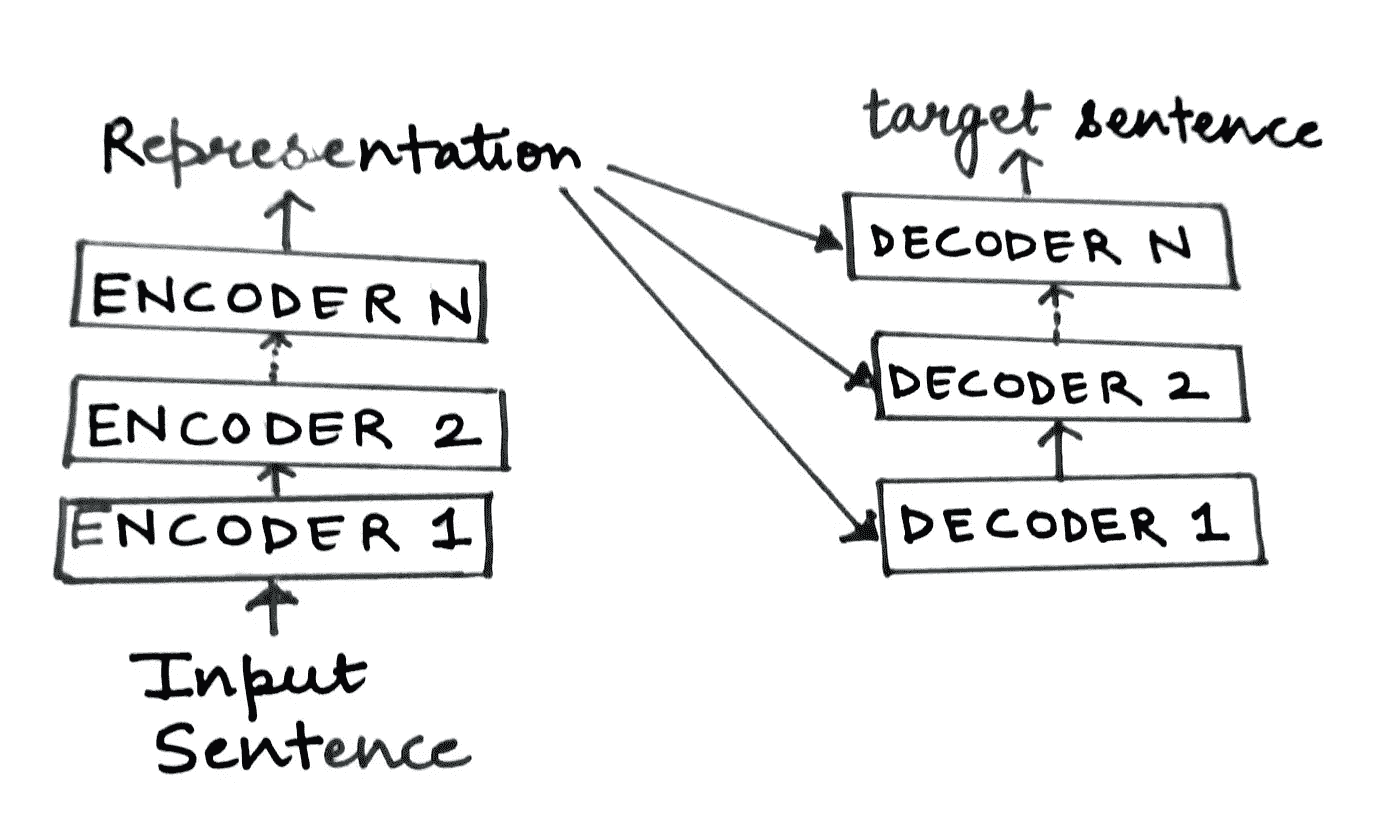 Representation
ENCODER N
ENCODER 2
ENCODER 1
Input
Sentence
target sentence
DECODER N
DECODER 2
DECODER 1